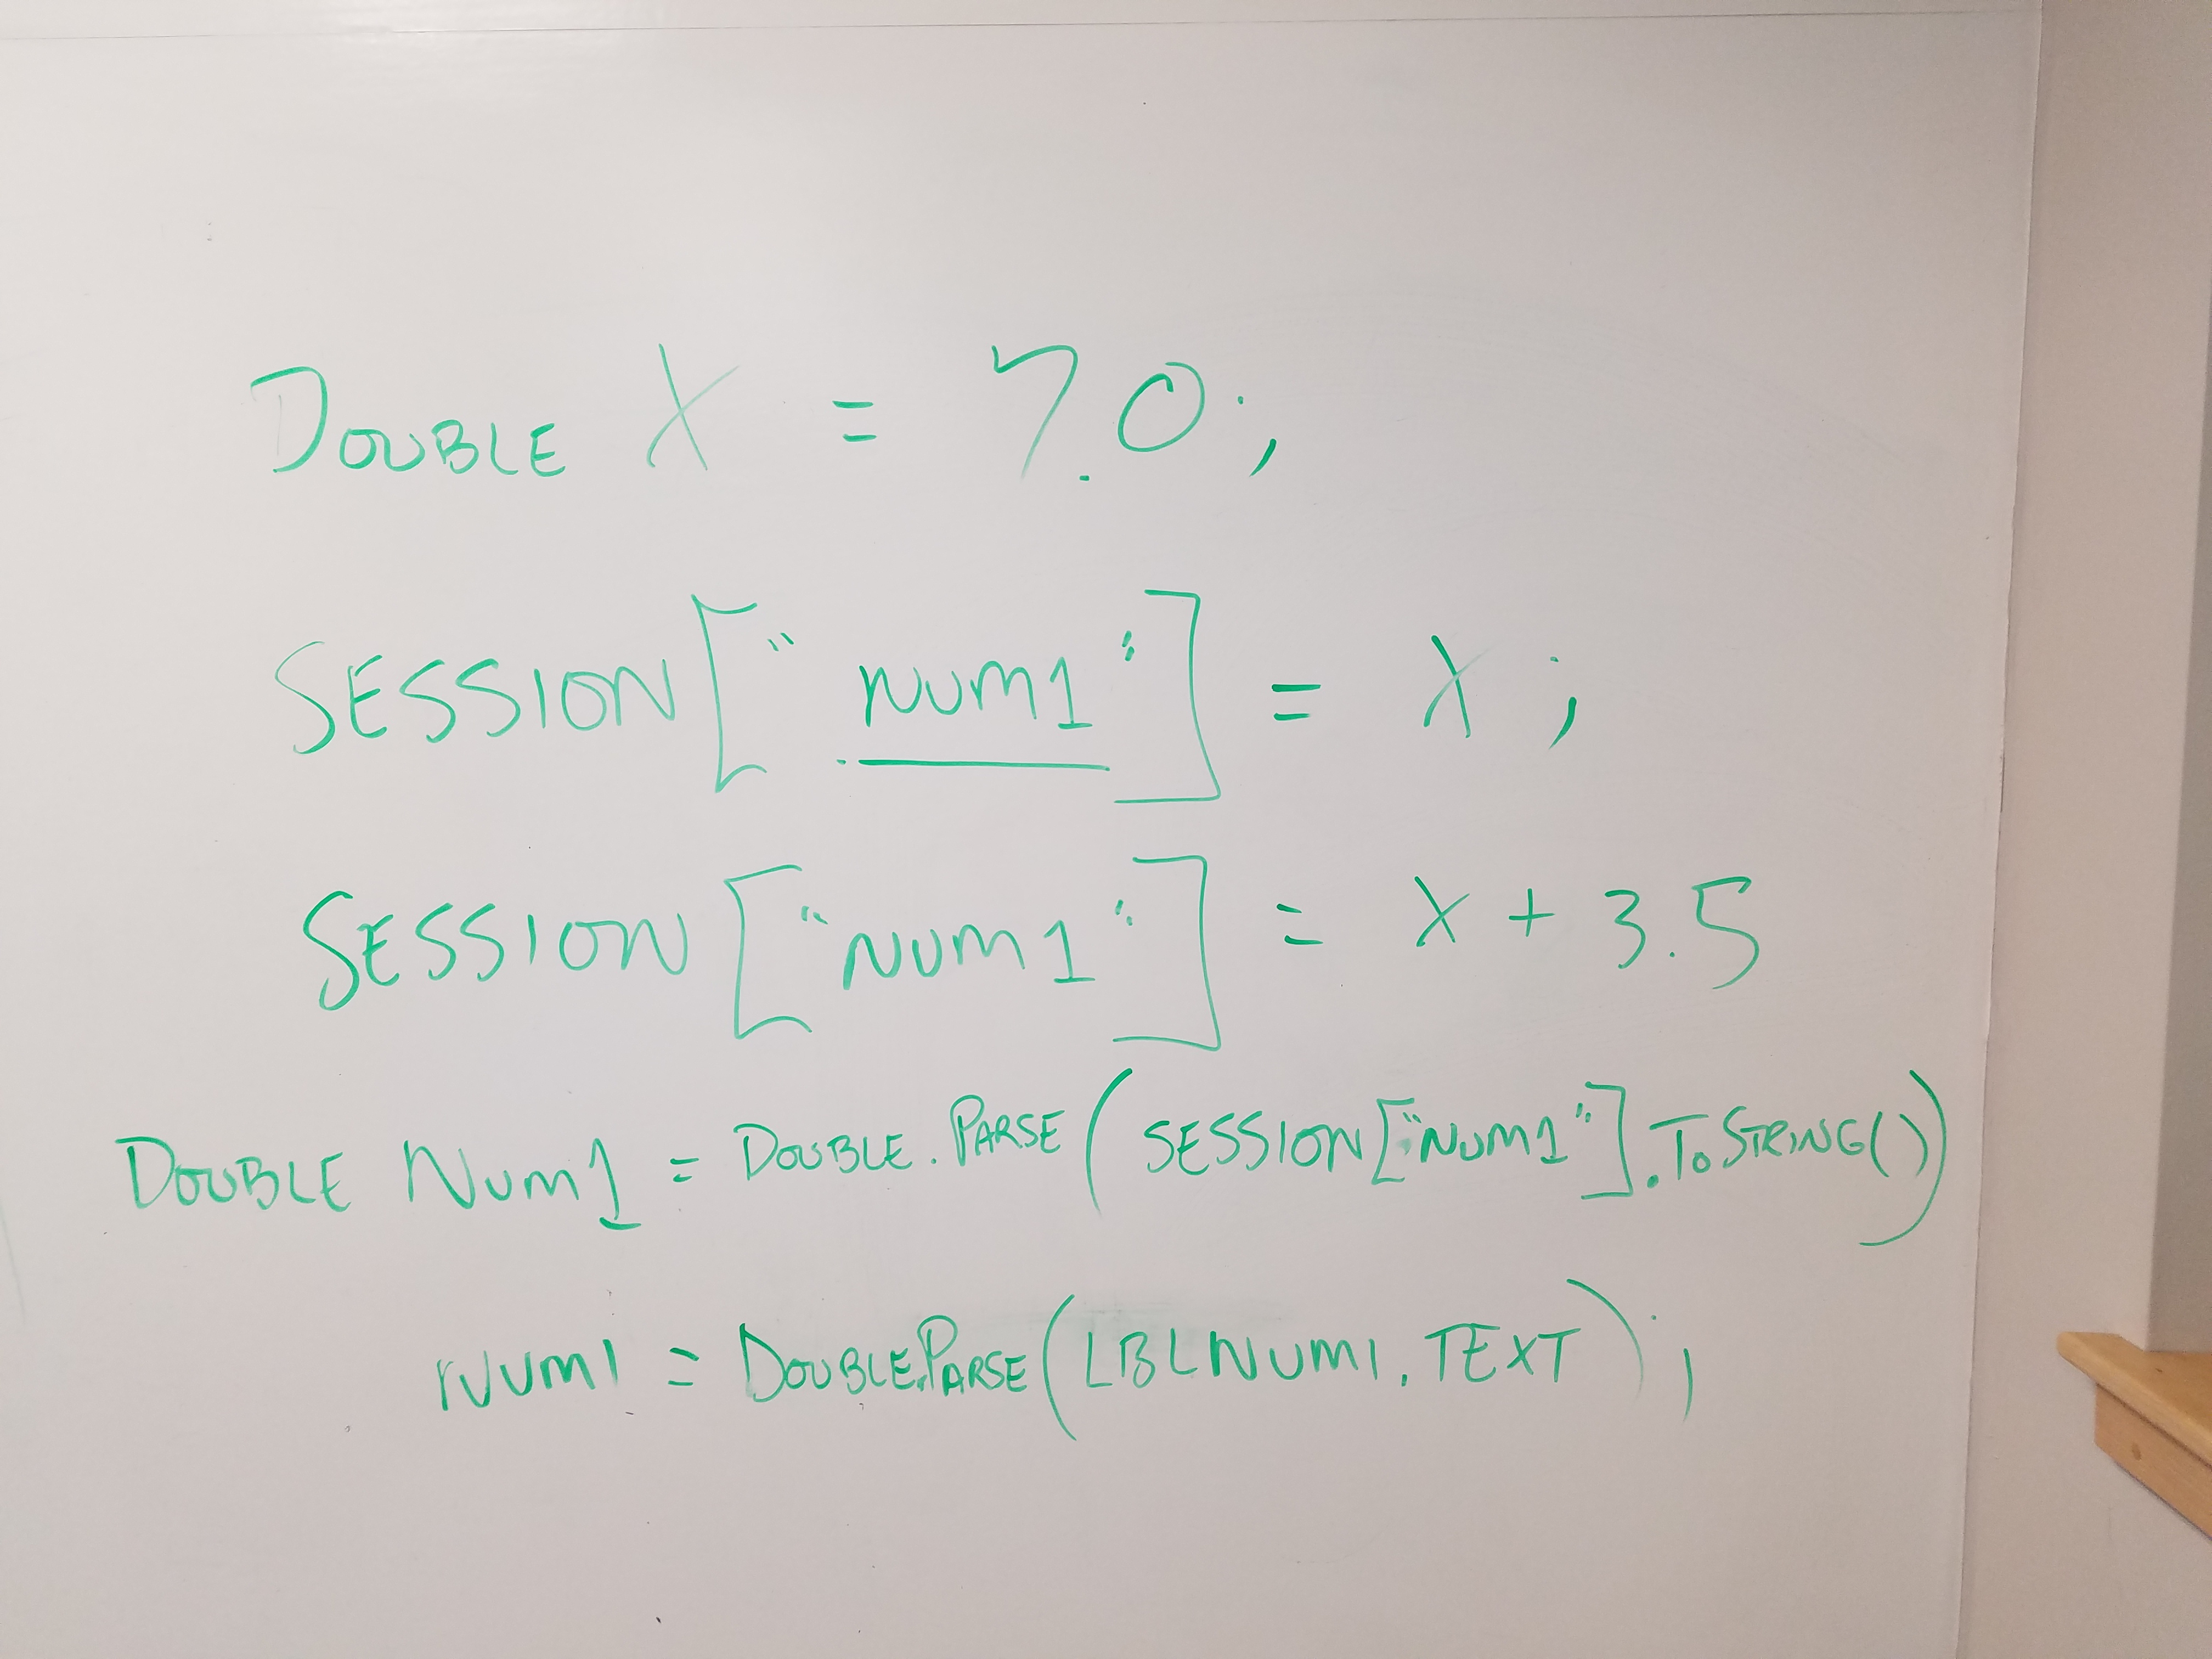 DOUBLE X = 7.0;
SESSION["NUM1"] = X;
SESSION["NUM1"] = X + 3.5
DOUBLE NUM1 = DOUBLE.PARSE(SESSION["NUM1"].TOSTRING())
NUM1 = DOUBLE.PARSE(LBLNUM1.TEXT);